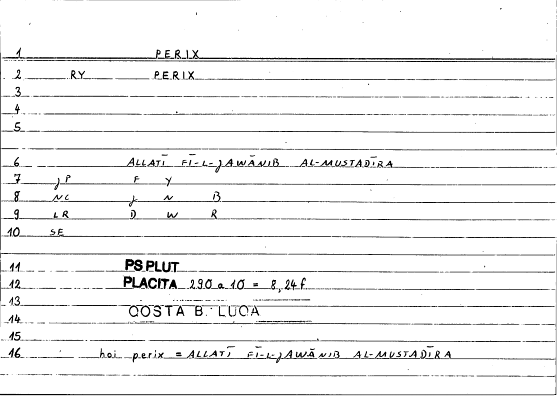 1 PERIX
2 RY PERIX
3
4
5
6 ALLATĪ FĪ-L-JAWĀNIB AL-MUSTADĪRA
7 JP F Y
8 NC J N B
9 LR D W R
10 SE
11 PS PLUT
12 PLACITA 290 a 10 = 8,24 f
13
14 QOSTA B. LUQA
15
16 hoi perix = ALLATĪ FĪ-L-JAWĀNIB AL-MUSTADĪRA